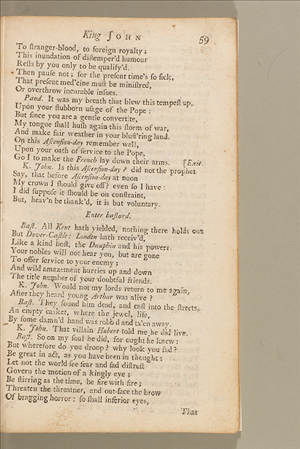 King JOHN 59
To stranger-blood, to foreign royalty;
This inundation of distemper'd humour
Rests by you only to be qualify'd.
Then pause not; for the present time's so sick,
That present med'cine must be ministred,
Or overthrow incurable insues.
Pand. It was my breath that blew this tempest up,
Upon your stubborn usage of the Pope:
But since you are a gentle convertite,
My tongue shall hush again this storm of war,
And make fair weather in your blust'ring land.
On this Ascension-day remember well,
Upon your oath of service to the Pope,
Go I to make the French lay down their arms. [Exit.
K. John. Is this Ascension-day? did not the prophet
Say, that before Ascension-day at noon
My crown I should give off? even so I have:
I did suppose it should be on constraint,
But, heav'n be thank'd, it is but voluntary.
Enter bastard.
Bast. All Kent hath yielded, nothing there holds out
But Dover-Castle: London hath receiv'd,
Like a kind host, the Dauphin and his powers.
Your nobles will not hear you, but are gone
To offer service to your enemy;
And wild amazement hurries up and down
The little number of your doubtful friends.
K. John. Would not my lords return to me again,
After they heard young Arthur was alive?
Bast. They found him dead, and cast into the streets,
An empty casket, where the jewel, life,
By some damn'd hand was robb'd and ta'en away.
K. John. That villain Hubert told me he did live.
Bast. So on my soul he did, for ought he knew:
But wherefore do you droop? why look you sad?
Be great in act, as you have been in thought:
Let not the world see fear and sad distrust
Govern the motion of a kingly eye;
Be stirring as the time, be fire with fire;
Threaten the threatner, and out-face the brow
Of bragging horror: so shall inferior eyes,
That